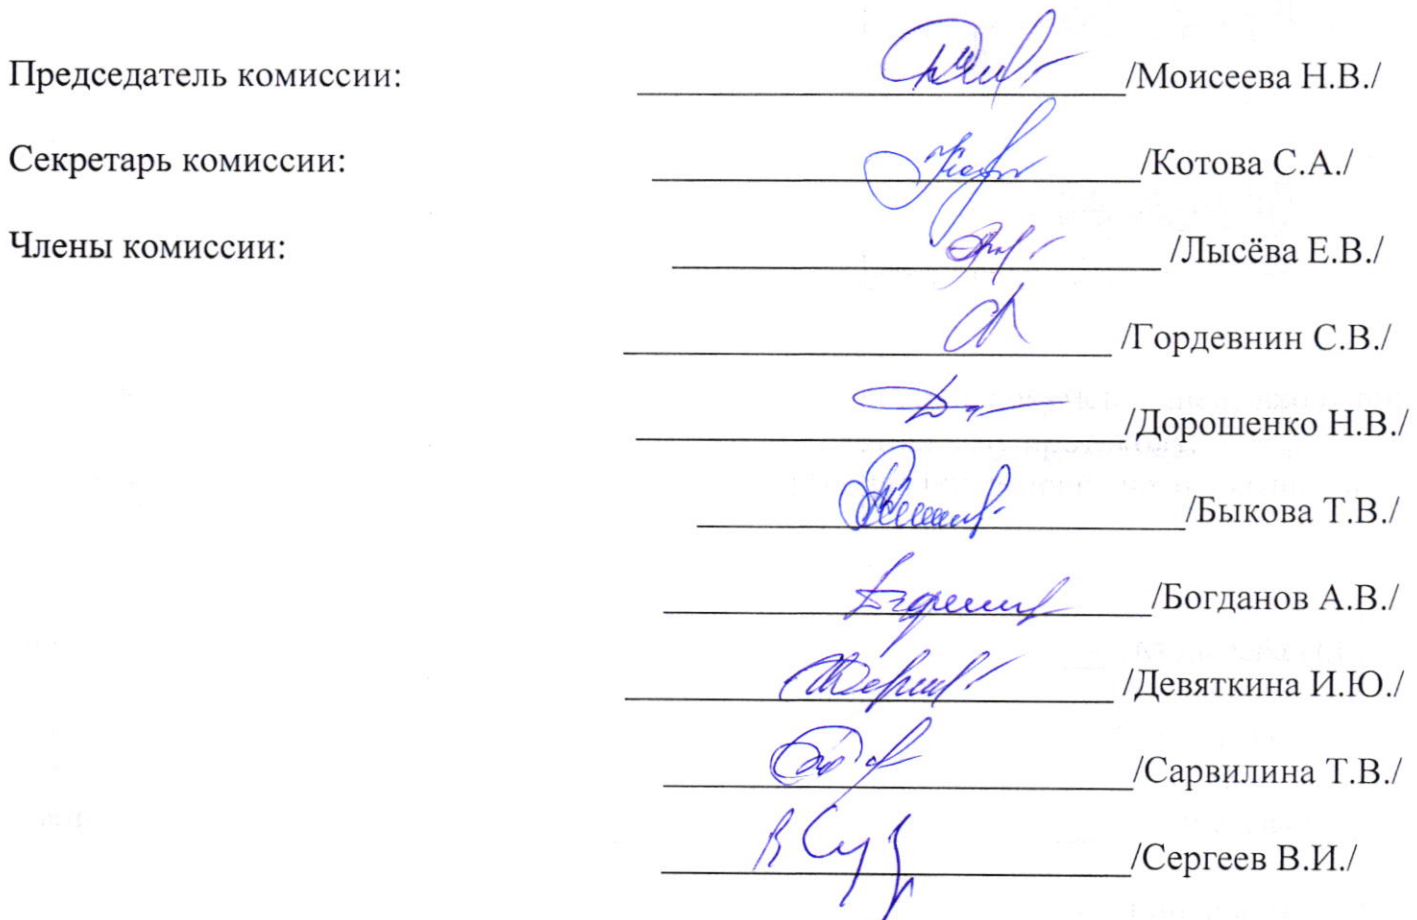 Председатель комиссии: /Моисеева Н.В./
Секретарь комиссии: /Котова С.А./
Члены комиссии: /Лысёва Е.В./
/Гордевнин С.В./
/Дорошенко Н.В./
/Быкова Т.В./
/Богданов А.В./
/Девяткина И.Ю./
/Сарвилина Т.В./
/Сергеев В.И./